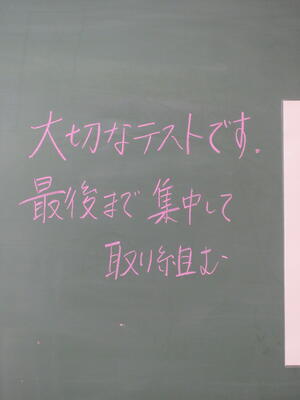 大切なテストです。
最後まで集中して
取り組む